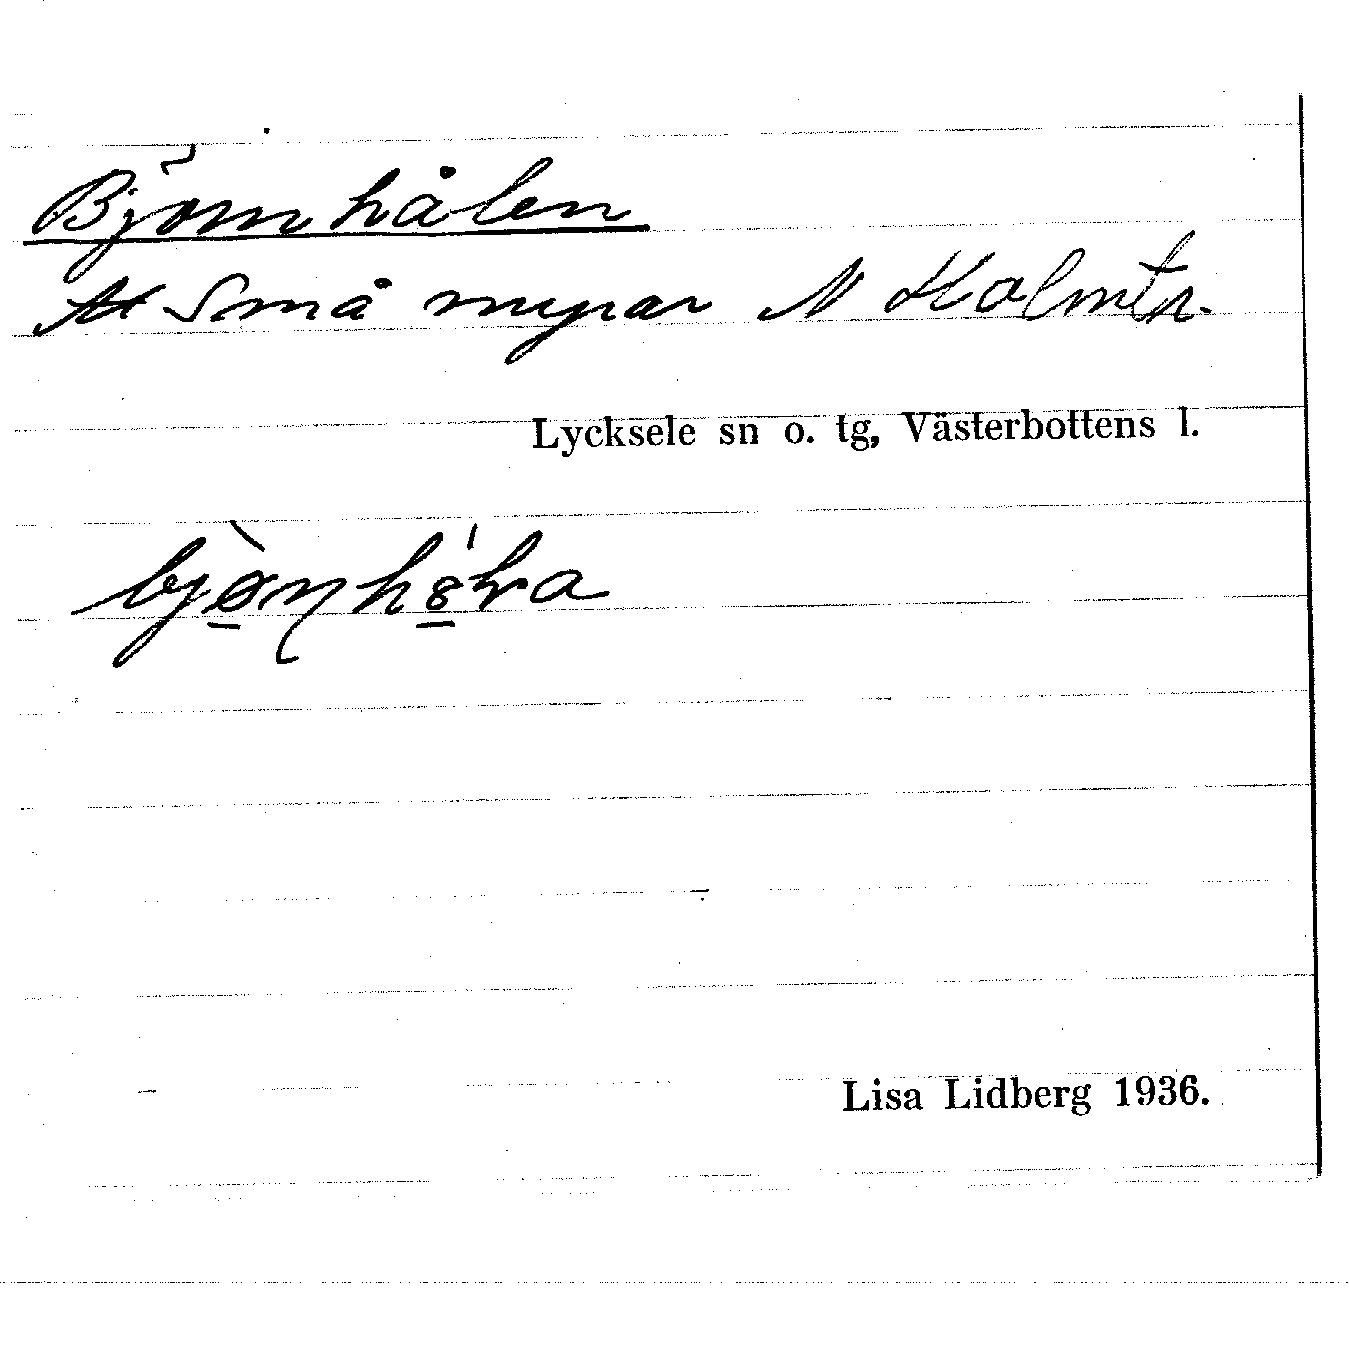 Björnhålen
Små myrar N Holmtr.
Lycksele sn o. tg, Västerbottens l.
Lisa Lidberg 1936.